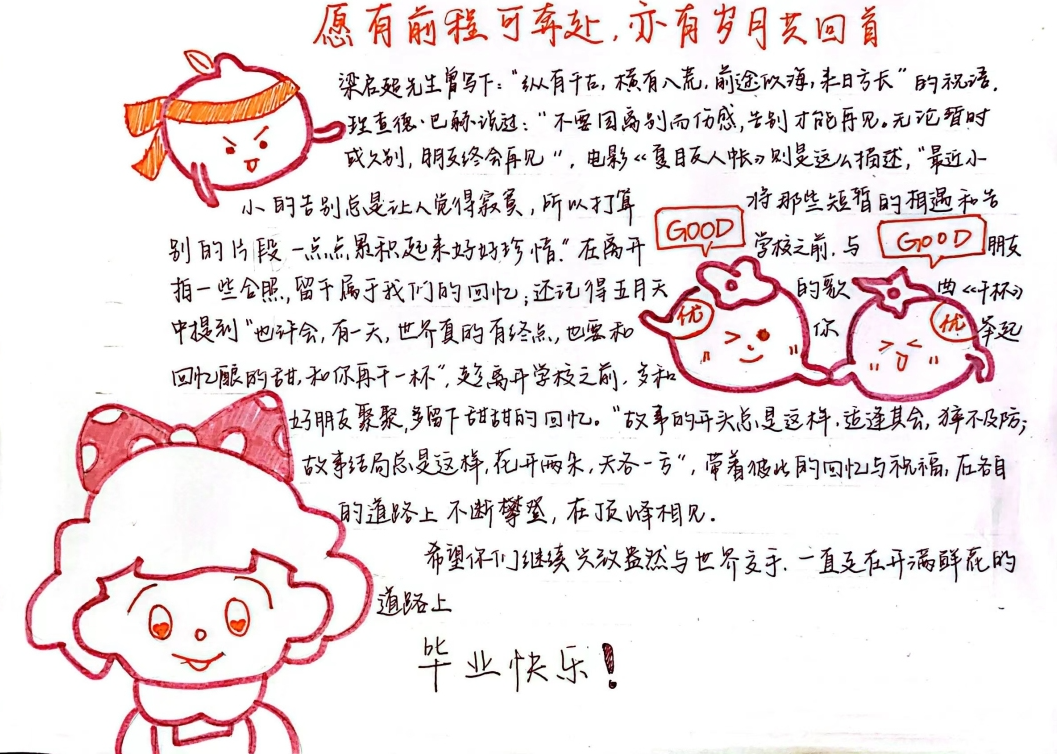 愿有前程可奔赴,亦有岁月共回首
梁启超先生曾写下:"纵有千古,横有八荒,前途似海,来日方长"的祝语.
理查德·巴赫说过:"不要因离别而伤感,告别才能再见。无论暂时
或久别,朋友终会再见",电影《夏目友人帐》则是这么描述,"最近小
小的告别总是让人觉得寂寞,所以打算 将那些短暂的相遇和告
GOOD
GOOD
别的片段一点点累积起来好好珍惜."在离开 学校之前,与 朋友
拍一些合照,留下属于我们的回忆;还记得五月天 的歌 曲《干杯》
优
优
中提到"也许会,有一天,世界真的有终点,也要和 你 举起
回忆酿的甜,和你再干一杯",趁离开学校之前,多和
好朋友聚聚,多留下甜甜的回忆。"故事的开头总是这样,适逢其会,猝不及防;
故事结局总是这样,花开两朵,天各一方",带着彼此的回忆与祝福,在各自
的道路上不断攀登,在顶峰相见.
希望你们继续兴致盎然与世界交手,一直走在开满鲜花的
道路上
毕业快乐!